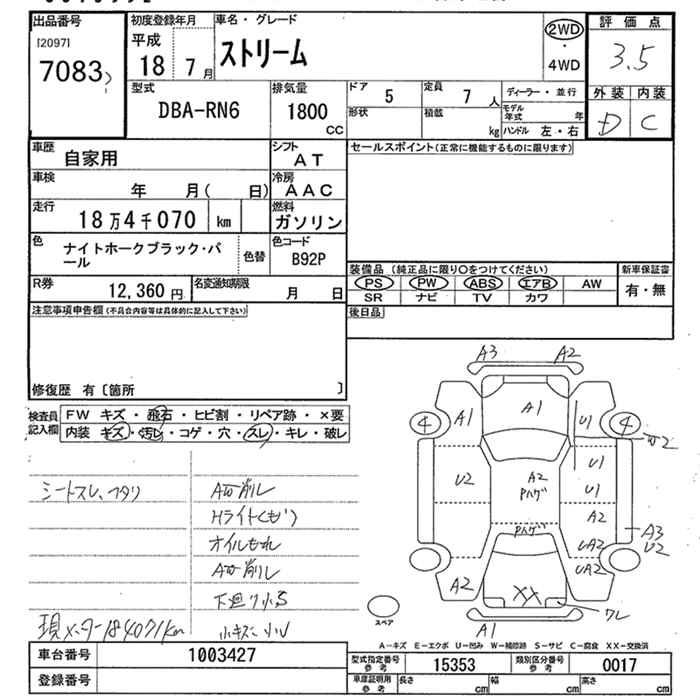 出品番号
[2097]
7083
初度登録年月
平成
18 7月
車名・グレード
ストリーム
2WD
・
4WD
評価点
3.5
外装 内装
D C
型式
DBA-RN6
排気量
1800
CC
ドア
5
定員
7人
形状
積載
kg
ディーラー・並行
モデル年式 年
ハンドル 左・右
車歴
自家用
シフト
AT
車検
年 月( 日)
冷房
AAC
走行
18万4千070 km
燃料
ガソリン
色
ナイトホークブラック・パール
色替
色コード
B92P
R券
12,360 円
名変通知期限
月 日
セールスポイント(正常に機能するものに限ります)
装備品 (純正品に限り○をつけてください)
PS PW ABS エアB AW
SR ナビ TV カワ
新車保証書
有・無
後日品
注意事項申告欄(不具合内容等は具体的に記入して下さい)
修復歴 有〔箇所 〕
検査員記入欄
FW キズ・飛石・ヒビ割・リペア跡・×要
内装 キズ・汚レ・コゲ・穴・スレ・キレ・破レ
シートスレ、ヘタリ
Hライトくもり
オイルもれ
現メーター184071km
車台番号
1003427
登録番号
A3 A2
A1
A1
4
4
U1
W2
U2
A2
Pハゲ
U1
U1
A2
Pハゲ
A3
U2
UA2
UA2
A2
XX
ワレ
A1
スペア
A-キズ E-エクボ U-凹み W-補修跡 S-サビ C-腐食 XX-交換済
型式指定番号
参考
15353
類別区分番号
参考
0017
車庫証明用
参考
長さ cm
幅 cm
高さ cm